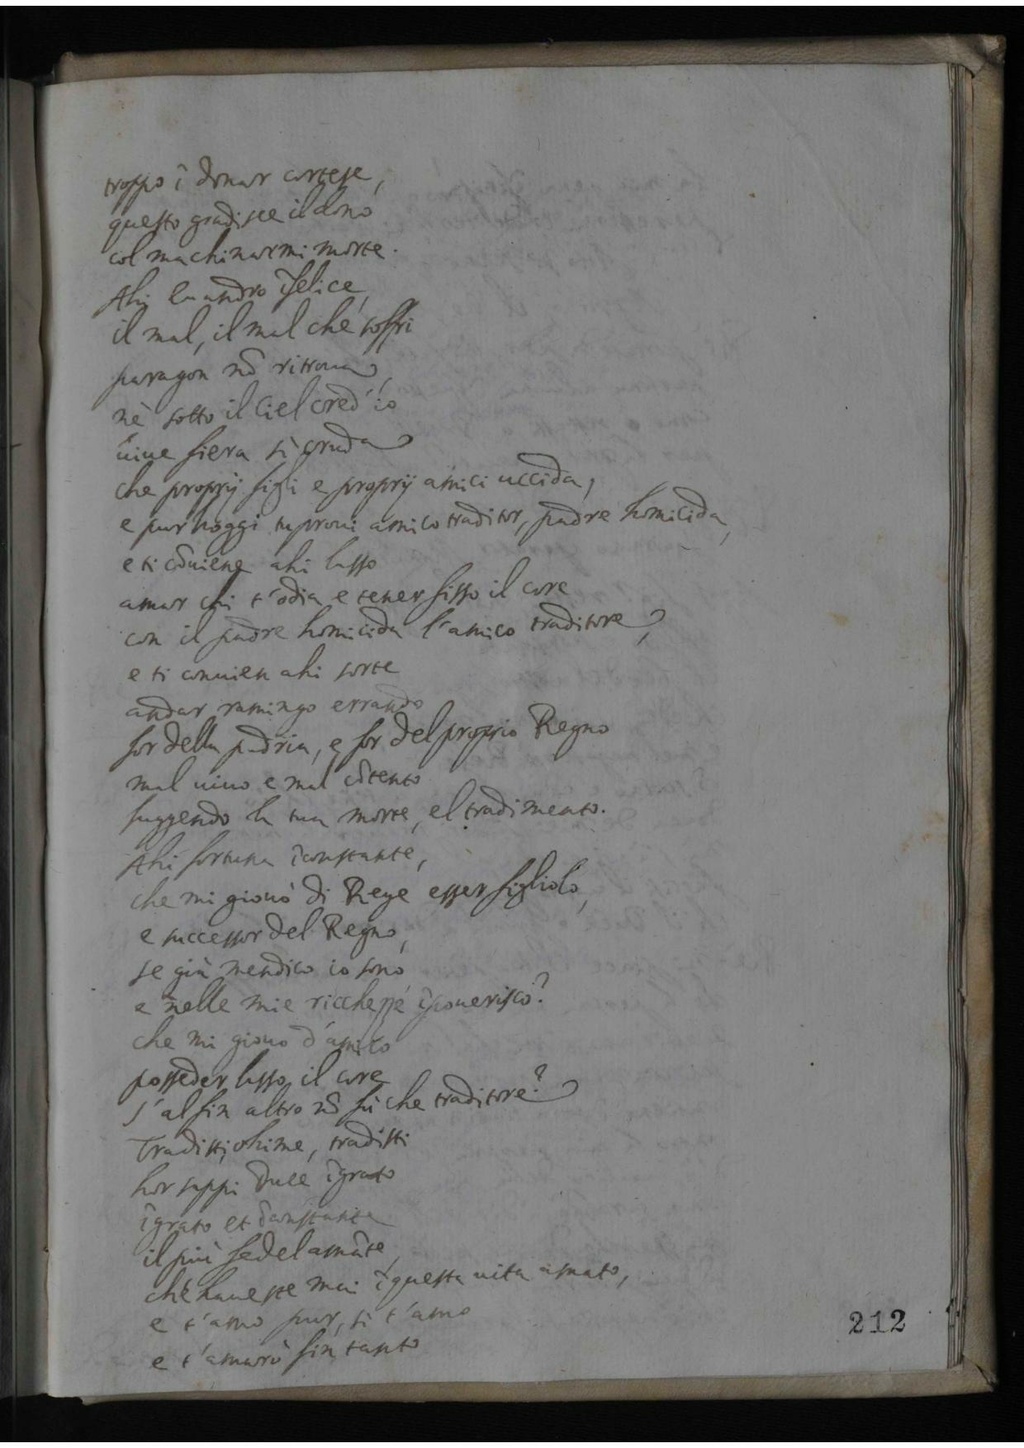 troppo ĩ donar cortese,
questo gradisce il dono
col machinarmi morte.
Ahi Euandro ĩfelice,
il mal, il mal che soffri
paragon nõ ritroua
nè sotto il Ciel cred'io
uiue fiera sì cruda
che proprij figli e proprij amici uccida,
e pur hoggi tu proui amico traditor, padre homicida,
e ti cõuiene ahi lasso
amar chi t'odia e tener fisso il core
con il padre homicida l'amico traditore,
e ti conuien ahi sorte
andar ramingo errando
for della padria, e for del proprio Regno
mal uiuo e mal cõtento
fuggendo la tua morte, el tradimento.
Ahi fortuna ĩconstante,
che mi giouò di Rege esser figliolo,
e successor del Regno,
se già mendico io sono
e nelle mie ricchezze ĩpouerisco?
che mi giouò d'amico
posseder lasso il core
s'al fin altro nõ fù che traditore?
Tradisti, ohime, tradisti
hor sappi Duce ĩgrato
ĩgrato et ĩconstante
il più fedel amãte,
ch'hauesse mai ĩ questa uita amato,
e t'amo pur, sì t'amo
e t'amarò fin tanto
212